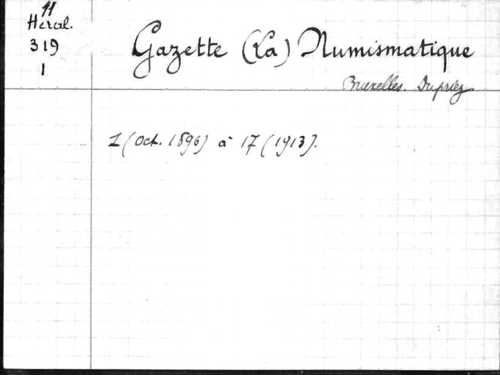 11
Héral.
319
1
Gazette (La) Numismatique
Bruxelles. Dupriez
1 (Oct. 1896) à 17 (1913).